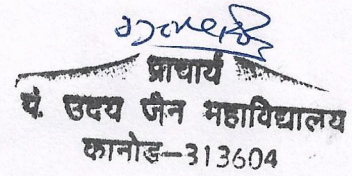 प्राचार्य
पं. उदय जैन महाविद्यालय
कानोड़-313604